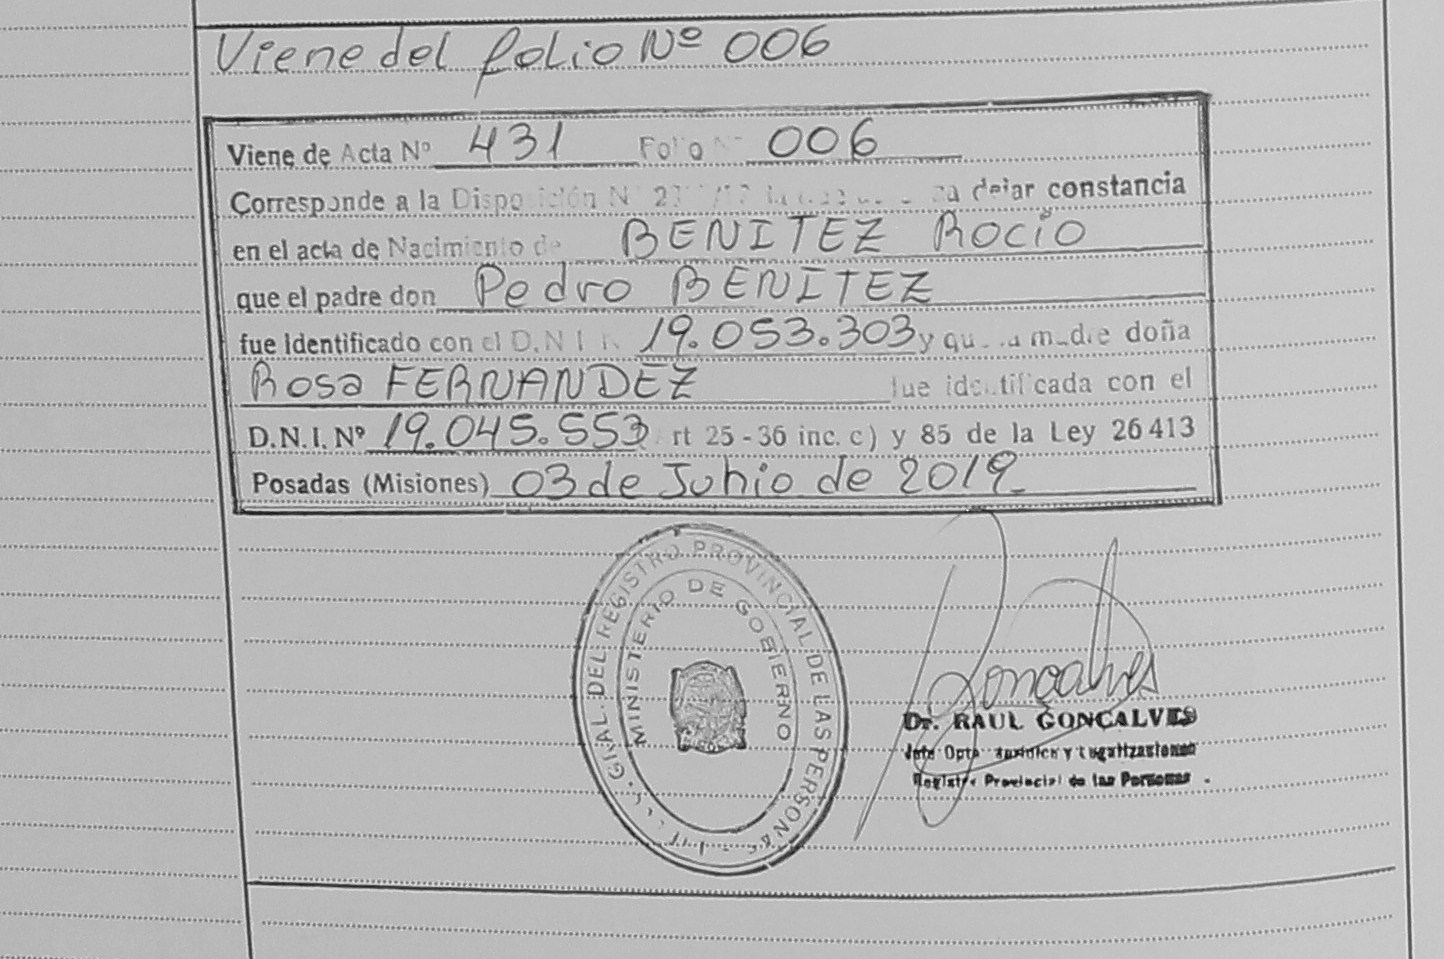 Viene del folio Nº 006
Viene de Acta Nº 431 Folio Nº 006
Corresponde a la Disposición Nº dejar constancia
en el acta de Nacimiento de BENITEZ Rocio
que el padre don Pedro BENITEZ
fue Identificado con el D.N.I. Nº 19.053.303 y que la madre doña
Rosa FERNANDEZ fue identificada con el
D.N.I. Nº 19.045.553 Art 25 - 36 inc. c) y 85 de la Ley 26 413
Posadas (Misiones) 03 de Junio de 2019
GRAL. DEL REGISTRO PROVINCIAL DE LAS PERSONAS
MINISTERIO DE GOBIERNO
Goncalves
Dr. RAUL GONCALVES
Jefe Dpto. y Legalizaciones
Registro Provincial de las Personas